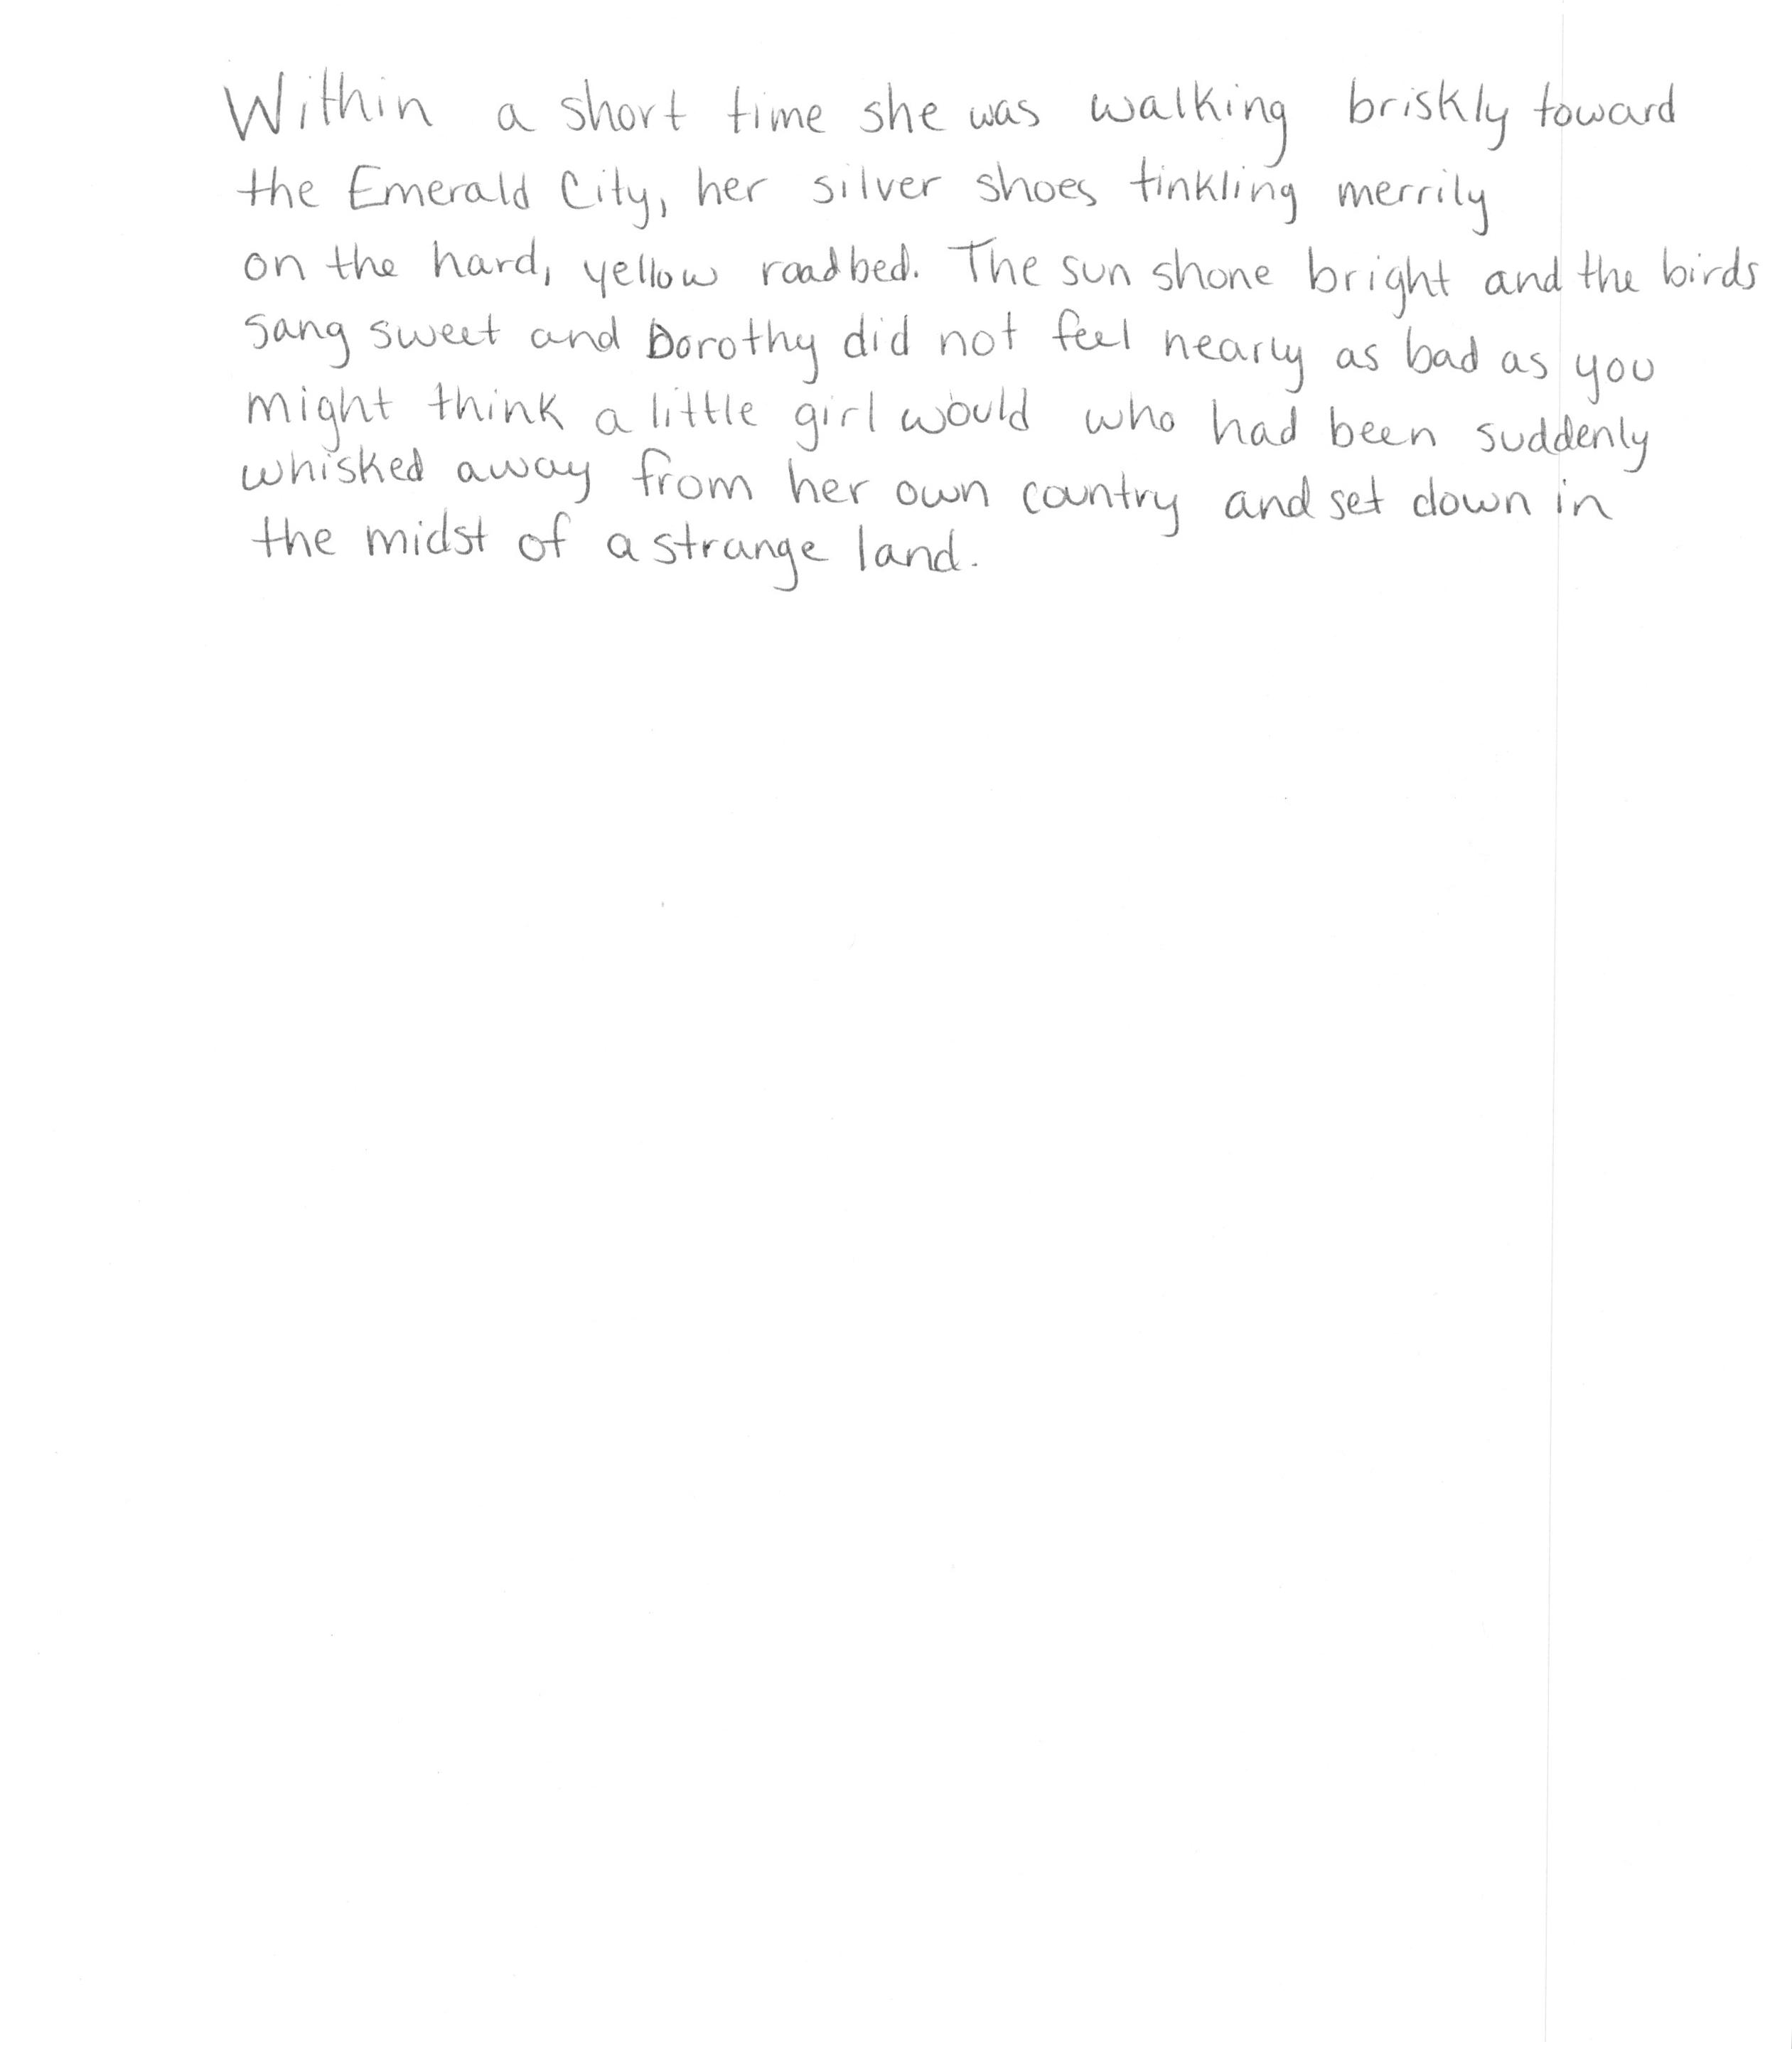 Within a short time she was walking briskly toward
the Emerald City, her silver shoes tinkling merrily
on the hard, yellow roadbed. The sun shone bright and the birds
sang sweet and Dorothy did not feel nearly as bad as you
might think a little girl would who had been suddenly
whisked away from her own country and set down in
the midst of a strange land.